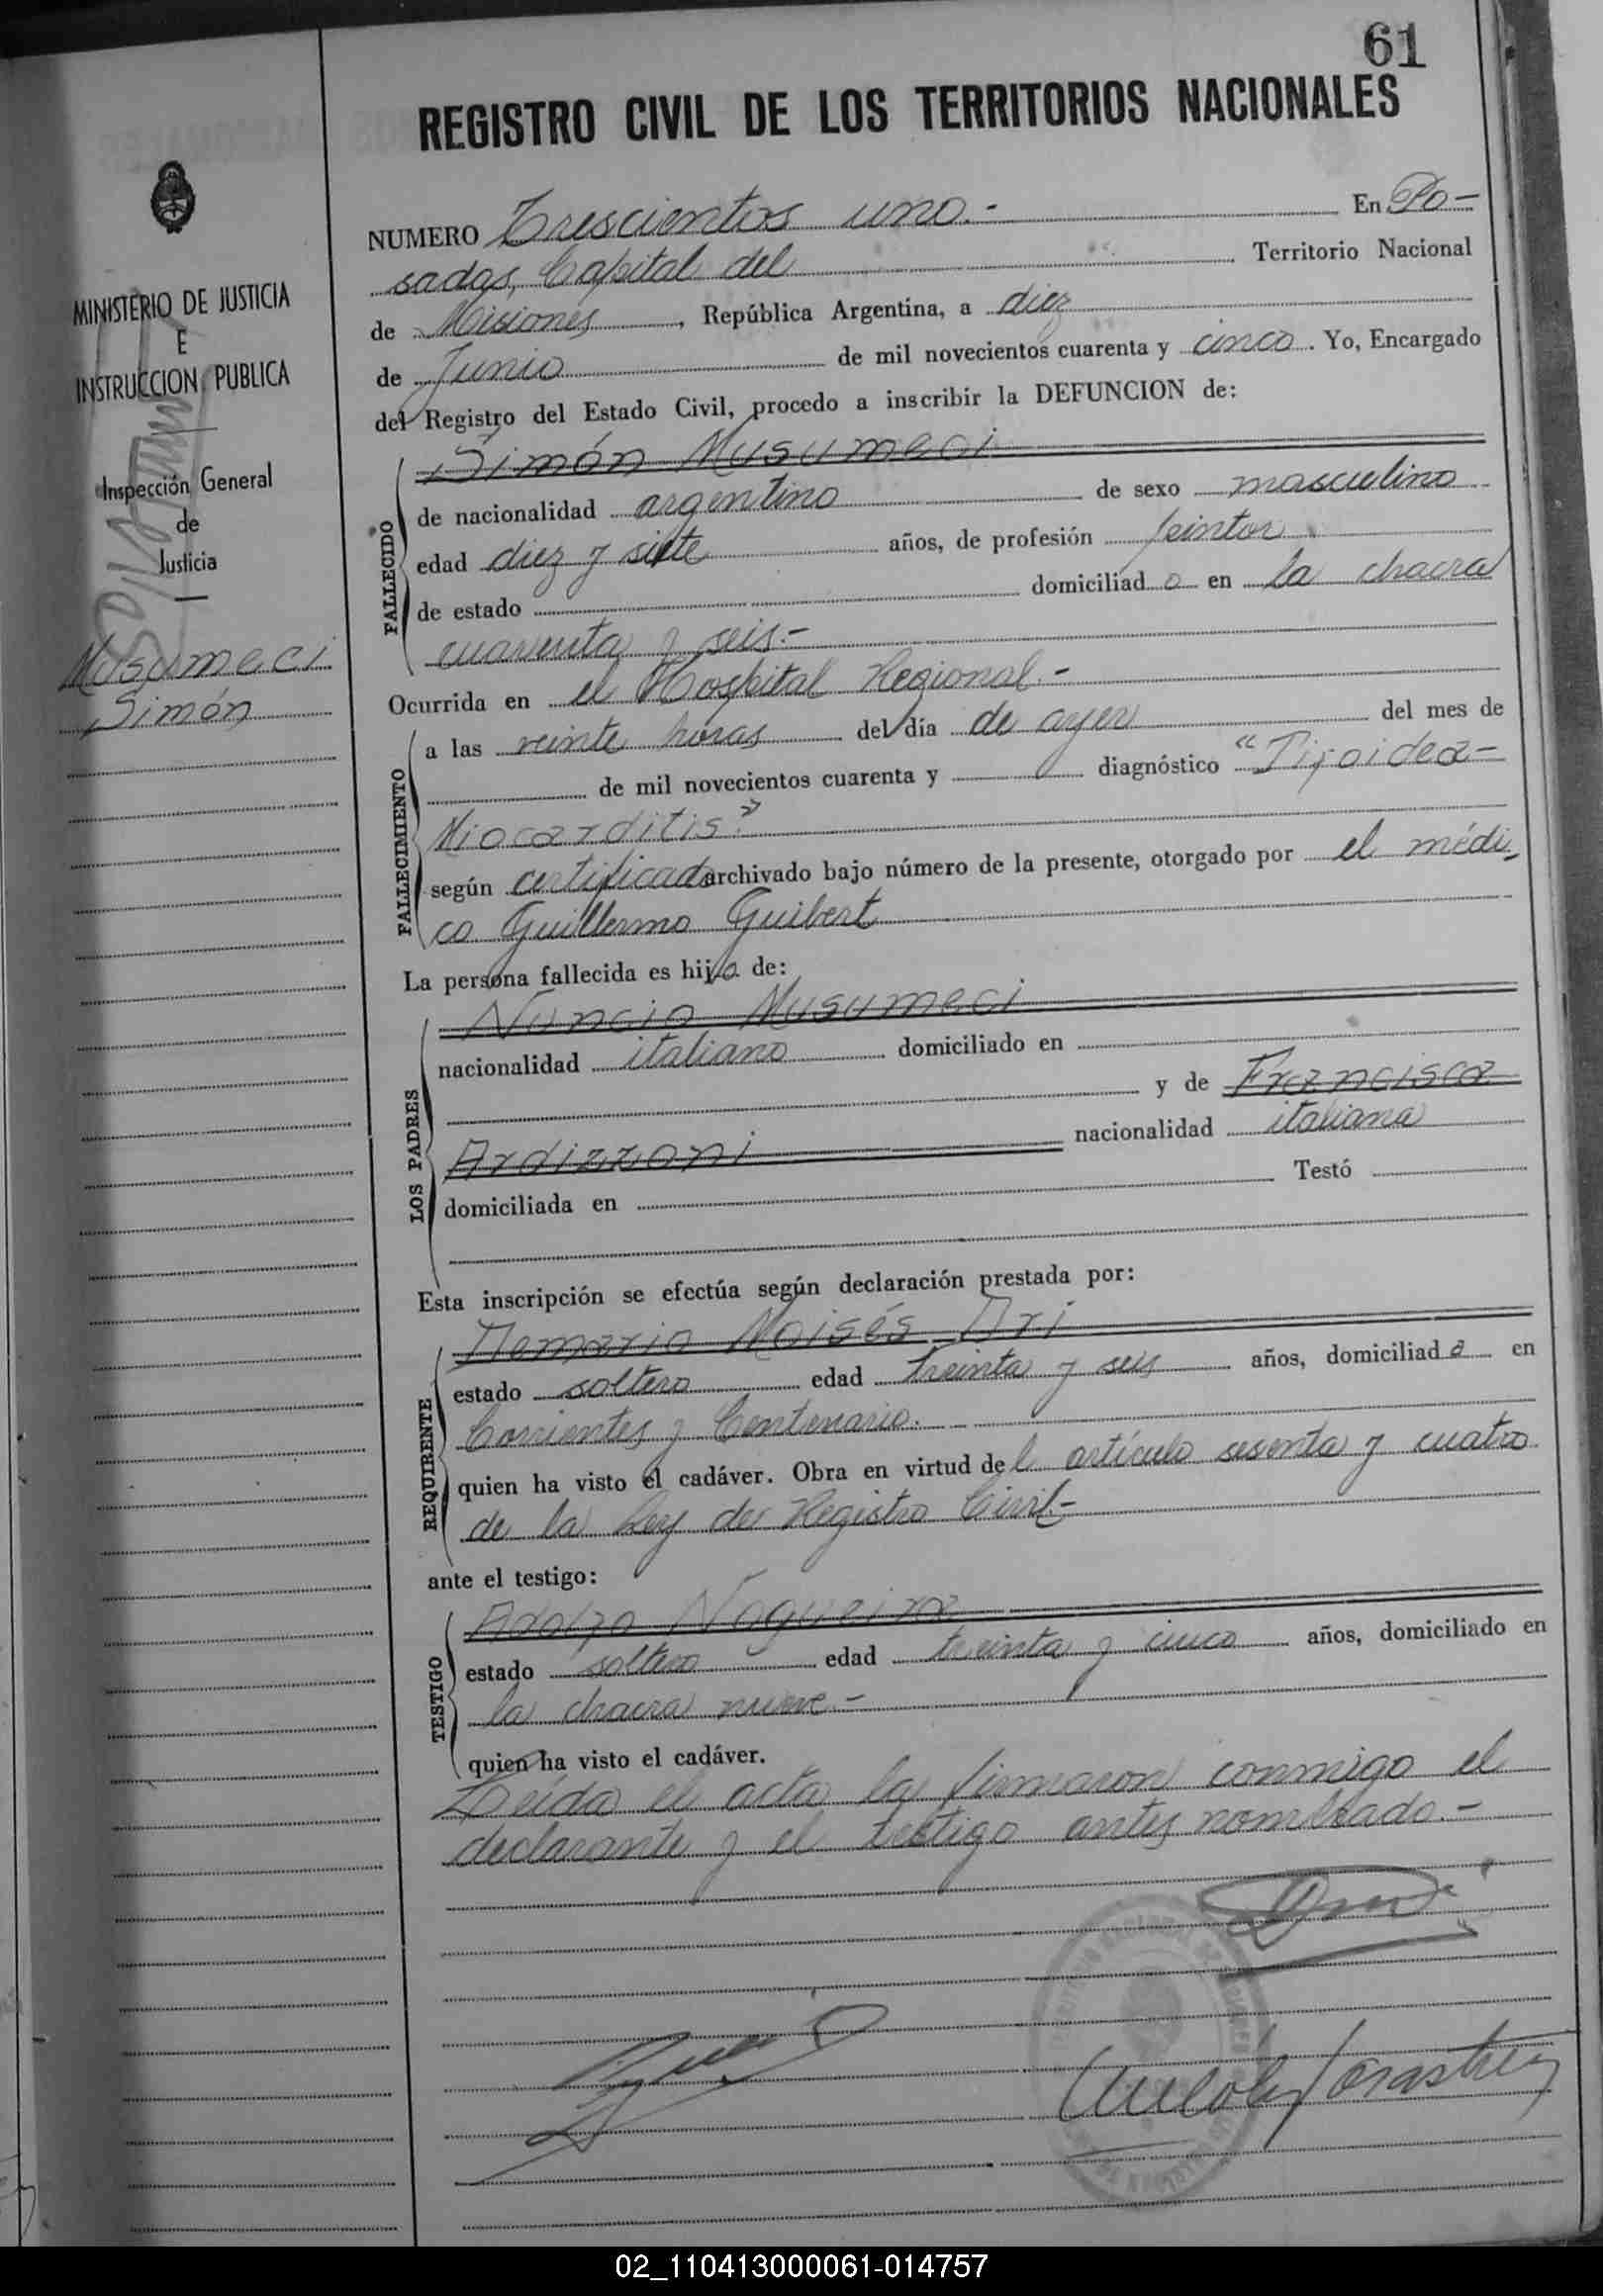 61
REGISTRO CIVIL DE LOS TERRITORIOS NACIONALES
MINISTERIO DE JUSTICIA
E
INSTRUCCION PUBLICA
Inspección General
de
Justicia
Musumeci
Simón
NUMERO Trescientos uno.- En Po-
sadas, Capital del Territorio Nacional
de Misiones, República Argentina, a diez
de Junio de mil novecientos cuarenta y cinco. Yo, Encargado
del Registro del Estado Civil, procedo a inscribir la DEFUNCION de:
FALLECIDO
Simón Musumeci
de nacionalidad argentino de sexo masculino
edad diez y siete años, de profesión pintor
de estado domiciliado en la chacra
cuarenta y seis.-
Ocurrida en el Hospital Regional.-
FALLECIMIENTO
a las veinte horas del día de ayer del mes de
de mil novecientos cuarenta y diagnóstico "Tifoidea-
Miocarditis".
según certificado archivado bajo número de la presente, otorgado por el médi-
co Guillermo Guibert
La persona fallecida es hijo de:
LOS PADRES
Nuncio Musumeci
nacionalidad italiano domiciliado en
y de Francisca
Ardizzoni nacionalidad italiana
domiciliada en Testó
Esta inscripción se efectúa según declaración prestada por:
REQUIRENTE
Demario Moisés Ari
estado soltero edad treinta y seis años, domiciliado en
Corrientes y Centenario.
quien ha visto el cadáver. Obra en virtud del artículo sesenta y cuatro
de la Ley de Registro Civil.-
ante el testigo:
TESTIGO
Adolfo Nogueira
estado soltero edad treinta y cinco años, domiciliado en
la chacra nueve.-
quien ha visto el cadáver.
Leída el acta la firmaron conmigo el
declarante y el testigo antes nombrado.-
02_110413000061-014757